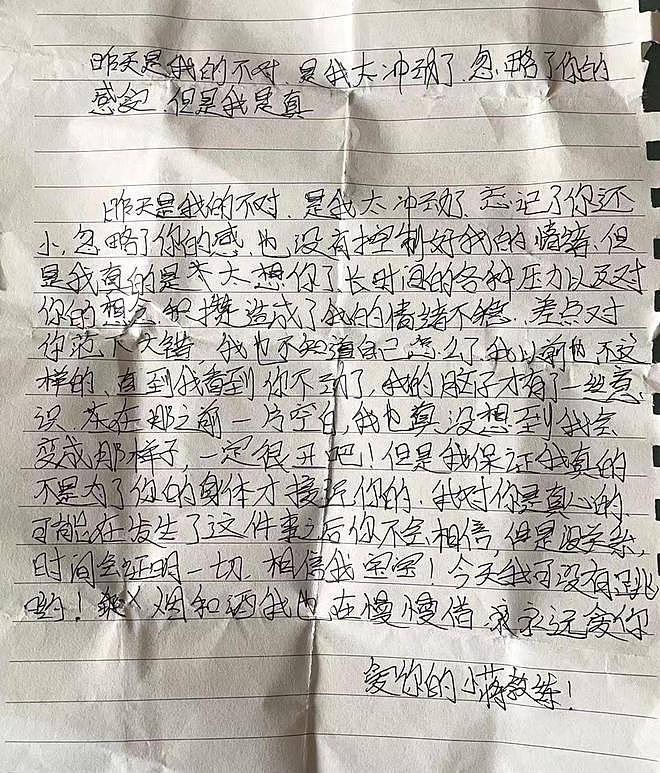 昨天是我的不对，是我太冲动了，忽略了你的
感受，但是我是真
昨天是我的不对，是我太冲动了，忘记了你还
小，忽略了你的感，也没有控制好我的情绪，但
是我真的是太想你了，长时间的各种压力以及对
你的想念积攒造成了我的情绪不稳，差点对
你犯下大错，我也不知道自己怎么了，我以前也不这
样的，直到我看到你不动了，我的脑子才有了一丝意
识，在那之前一片空白，我也真没想到我会
变成那样子，一定很丑吧！但是我保证我真的
不是为了你的身体才接近你的，我对你是真心的
可能在发生了这件事之后你不会相信，但是没关系，
时间会证明一切，相信我宝宝！今天我可没有跳
哟！烟和酒我也在慢慢借，永远爱你
爱你的小蒋教练！